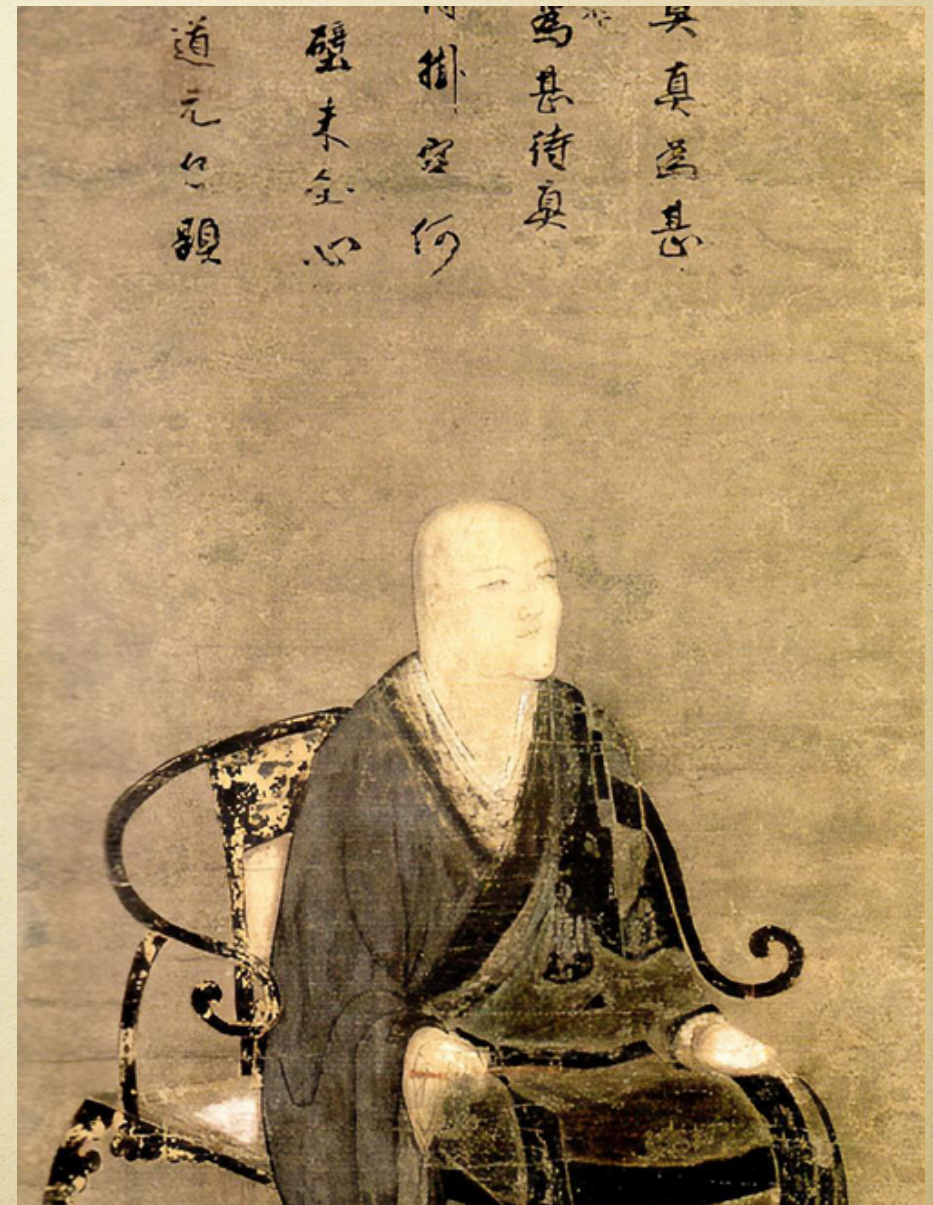 真為甚
為甚待真
掛空何
壁未全心
道元自題